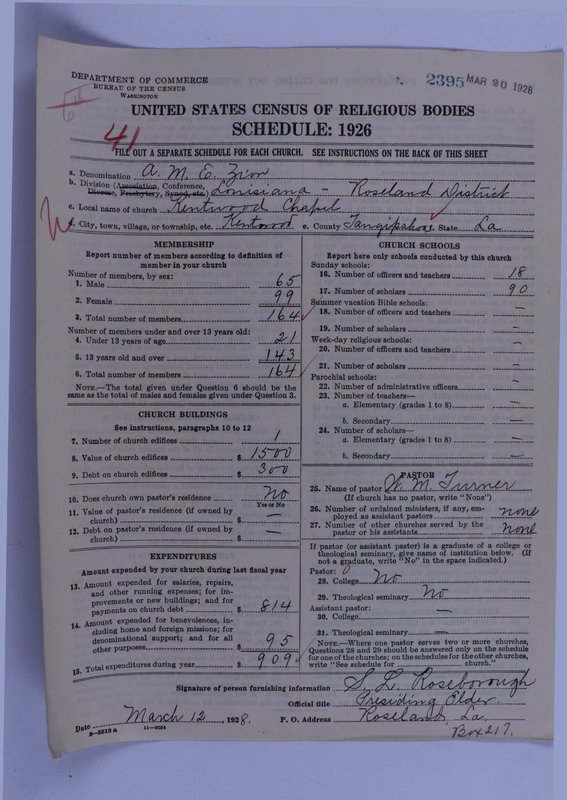 DEPARTMENT OF COMMERCE
BUREAU OF THE CENSUS
WASHINGTON
2395 MAR 20 1928
6th
UNITED STATES CENSUS OF RELIGIOUS BODIES
SCHEDULE: 1926
41
FILL OUT A SEPARATE SCHEDULE FOR EACH CHURCH. SEE INSTRUCTIONS ON THE BACK OF THIS SHEET
a. Denomination A. M. E. Zion
b. Division (Association, Conference, Diocese, Presbytery, Synod, etc.) Louisiana - Roseland District
c. Local name of church Kentwood Chapel
d. City, town, village, or township, etc. Kentwood e. County Tangipahoa State La
MEMBERSHIP
Report number of members according to definition of
member in your church
Number of members, by sex:
1. Male 65
2. Female 99
3. Total number of members 164
Number of members under and over 13 years old:
4. Under 13 years of age 21
5. 13 years old and over 143
6. Total number of members 164
NOTE.—The total given under Question 6 should be the
same as the total of males and females given under Question 3.
CHURCH BUILDINGS
See instructions, paragraphs 10 to 12
7. Number of church edifices 1
8. Value of church edifices $ 1500
9. Debt on church edifices $ 300
10. Does church own pastor's residence No
Yes or No
11. Value of pastor's residence (if owned by
church) $ —
12. Debt on pastor's residence (if owned by
church) $ —
EXPENDITURES
Amount expended by your church during last fiscal year
13. Amount expended for salaries, repairs,
and other running expenses; for im-
provements or new buildings; and for
payments on church debt $ 814
14. Amount expended for benevolences, in-
cluding home and foreign missions; for
denominational support; and for all
other purposes $ 95
15. Total expenditures during year $ 909
CHURCH SCHOOLS
Report here only schools conducted by this church
Sunday schools:
16. Number of officers and teachers 18
17. Number of scholars 90
Summer vacation Bible schools:
18. Number of officers and teachers —
19. Number of scholars —
Week-day religious schools:
20. Number of officers and teachers —
21. Number of scholars —
Parochial schools:
22. Number of administrative officers —
23. Number of teachers—
a. Elementary (grades 1 to 8) —
b. Secondary —
24. Number of scholars—
a. Elementary (grades 1 to 8) —
b. Secondary —
PASTOR
25. Name of pastor W. M. Turner
(If church has no pastor, write "None")
26. Number of ordained ministers, if any, em-
ployed as assistant pastors none
27. Number of other churches served by the
pastor or his assistants none
If pastor (or assistant pastor) is a graduate of a college or
theological seminary, give name of institution below. (If
not a graduate, write "No" in the space indicated.)
Pastor: 0
28. College No
29. Theological seminary No
Assistant pastor:
30. College —
31. Theological seminary —
NOTE.—Where one pastor serves two or more churches,
Questions 28 and 29 should be answered only on the schedule
for one of the churches; on the schedules for the other churches,
write "See schedule for church."
Signature of person furnishing information S. L. Roseborough
Official title Presiding Elder.
Date March 12, 1928. P. O. Address Roseland, La.
Box 217.
8-5518 a 11-9084